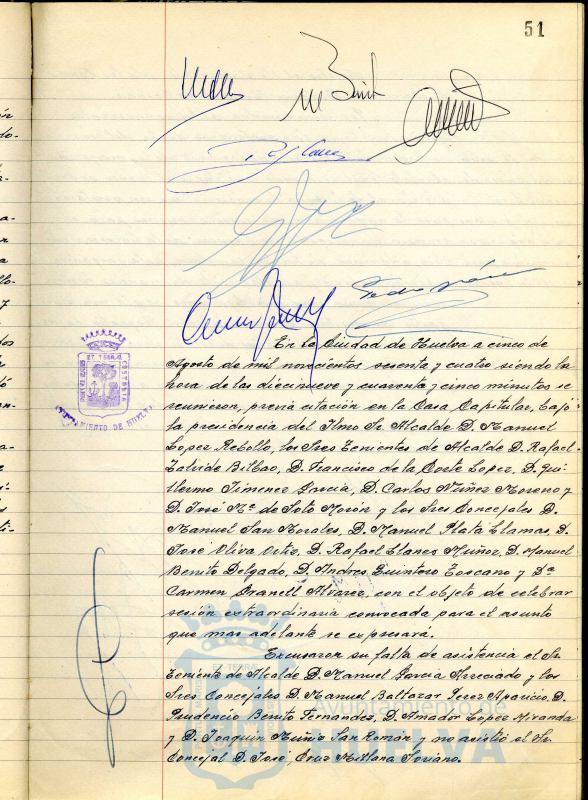 51
En la Ciudad de Huelva a cinco de
Agosto de mil novecientos sesenta y cuatro siendo la
hora de las diecinueve y cuarenta y cinco minutos se
reunieron, previa citación en la Casa Capitular, bajo
la presidencia del Ilmo Sr. Alcalde D. Manuel
Lopez Rebollo, los Sres Tenientes de Alcalde D. Rafael
Bilbao, D. Francisco de la Corte Lopez, D. Gui-
llermo Jimenez Garcia, D. Carlos Nuñez Moreno y
D. José Mª de Soto Morón y los Sres Concejales D.
Manuel San Morales, D. Manuel Plata Llamas, D.
José Oliva Ortiz, D. Rafael Llanes Muñoz, D. Manuel
Benito Delgado, D. Andres Quintero Toscano y Dª
Carmen Granell Alvarez, con el objeto de celebrar
sesión extraordinaria convocada para el asunto
que mas adelante se expresará.
Excusaron su falta de asistencia el Sr.
Teniente de Alcalde D. Manuel Garcia Arreciado y los
Sres Concejales D. Manuel Baltazar Perez Aparicio, D.
Prudencio Benito Fernandez, D. Amador Lopez Miranda
y D. Joaquin San Román y no asistió el Sr.
Concejal D. José, Cruz Soriano.
AYUNTAMIENTO DE HUELVA
Ayuntamiento de
HUELVA